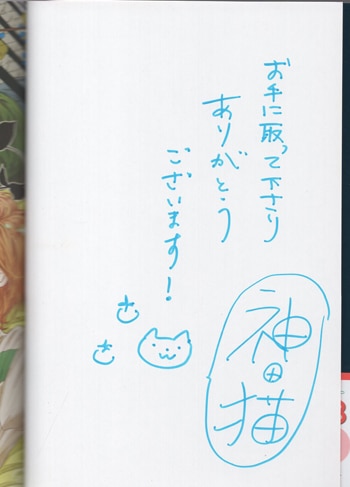 お手に取って下さり
ありがとう
ございます!
神田猫